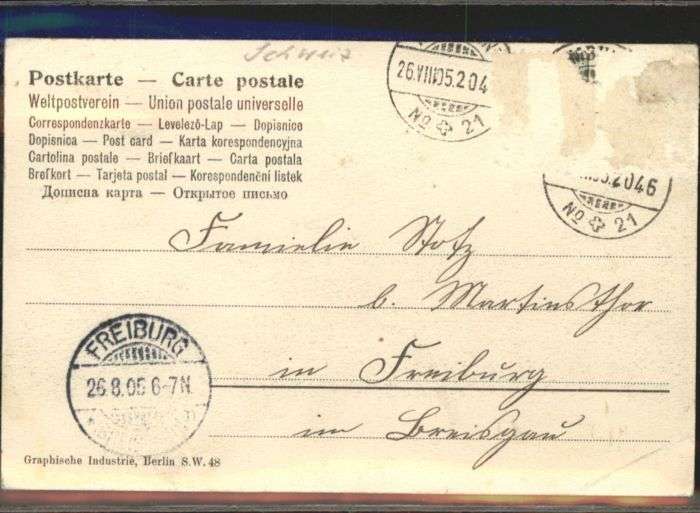 Schweiz
Postkarte — Carte postale
Weltpostverein — Union postale universelle
Correspondenzkarte — Levelező-Lap — Dopisnice
Dopisnica — Post card — Karta korespondencyjna
Cartolina postale — Briefkaart — Carta postala
Brefkort — Tarjeta postal — Korespondenční listek
Дописна карта — Открытое письмо
26.VIII 05.2 04
No 21
05.2046
No 21
Famielie Stotz
b. Martinsthor
in Freiburg
im Breisgau
FREIBURG
26.8.05 6-7N
Graphische Industrie, Berlin S.W. 48